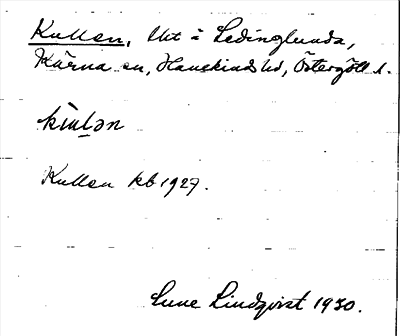 Kullen, lht i Ledinglunda,
Kärna sn, Hanekinds hd, Östergötl l.
Kullen kb 1927.
Sune Lindqvist 1930.